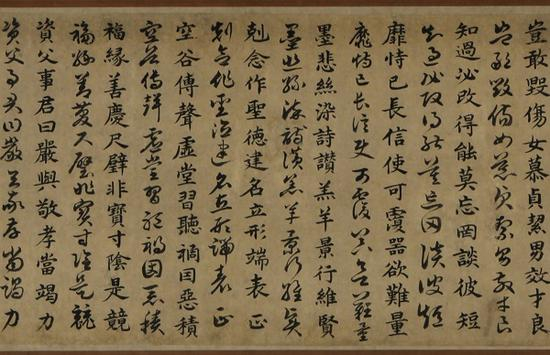 豈敢毀傷女慕貞潔男效才良
豈敢毀傷女慕貞潔男效才良
知過必改得能莫忘罔談彼短
知過必改得能莫忘罔談彼短
靡恃己長信使可覆器欲難量
靡恃己長信使可覆器欲難量
墨悲絲染詩讚羔羊景行維賢
墨悲絲染詩讚羔羊景行維賢
剋念作聖德建名立形端表正
剋念作聖德建名立形端表正
空谷傳聲虛堂習聽禍因惡積
空谷傳聲虛堂習聽禍因惡積
福緣善慶尺璧非寶寸陰是競
福緣善慶尺璧非寶寸陰是競
資父事君曰嚴與敬孝當竭力
資父事君曰嚴與敬孝當竭力